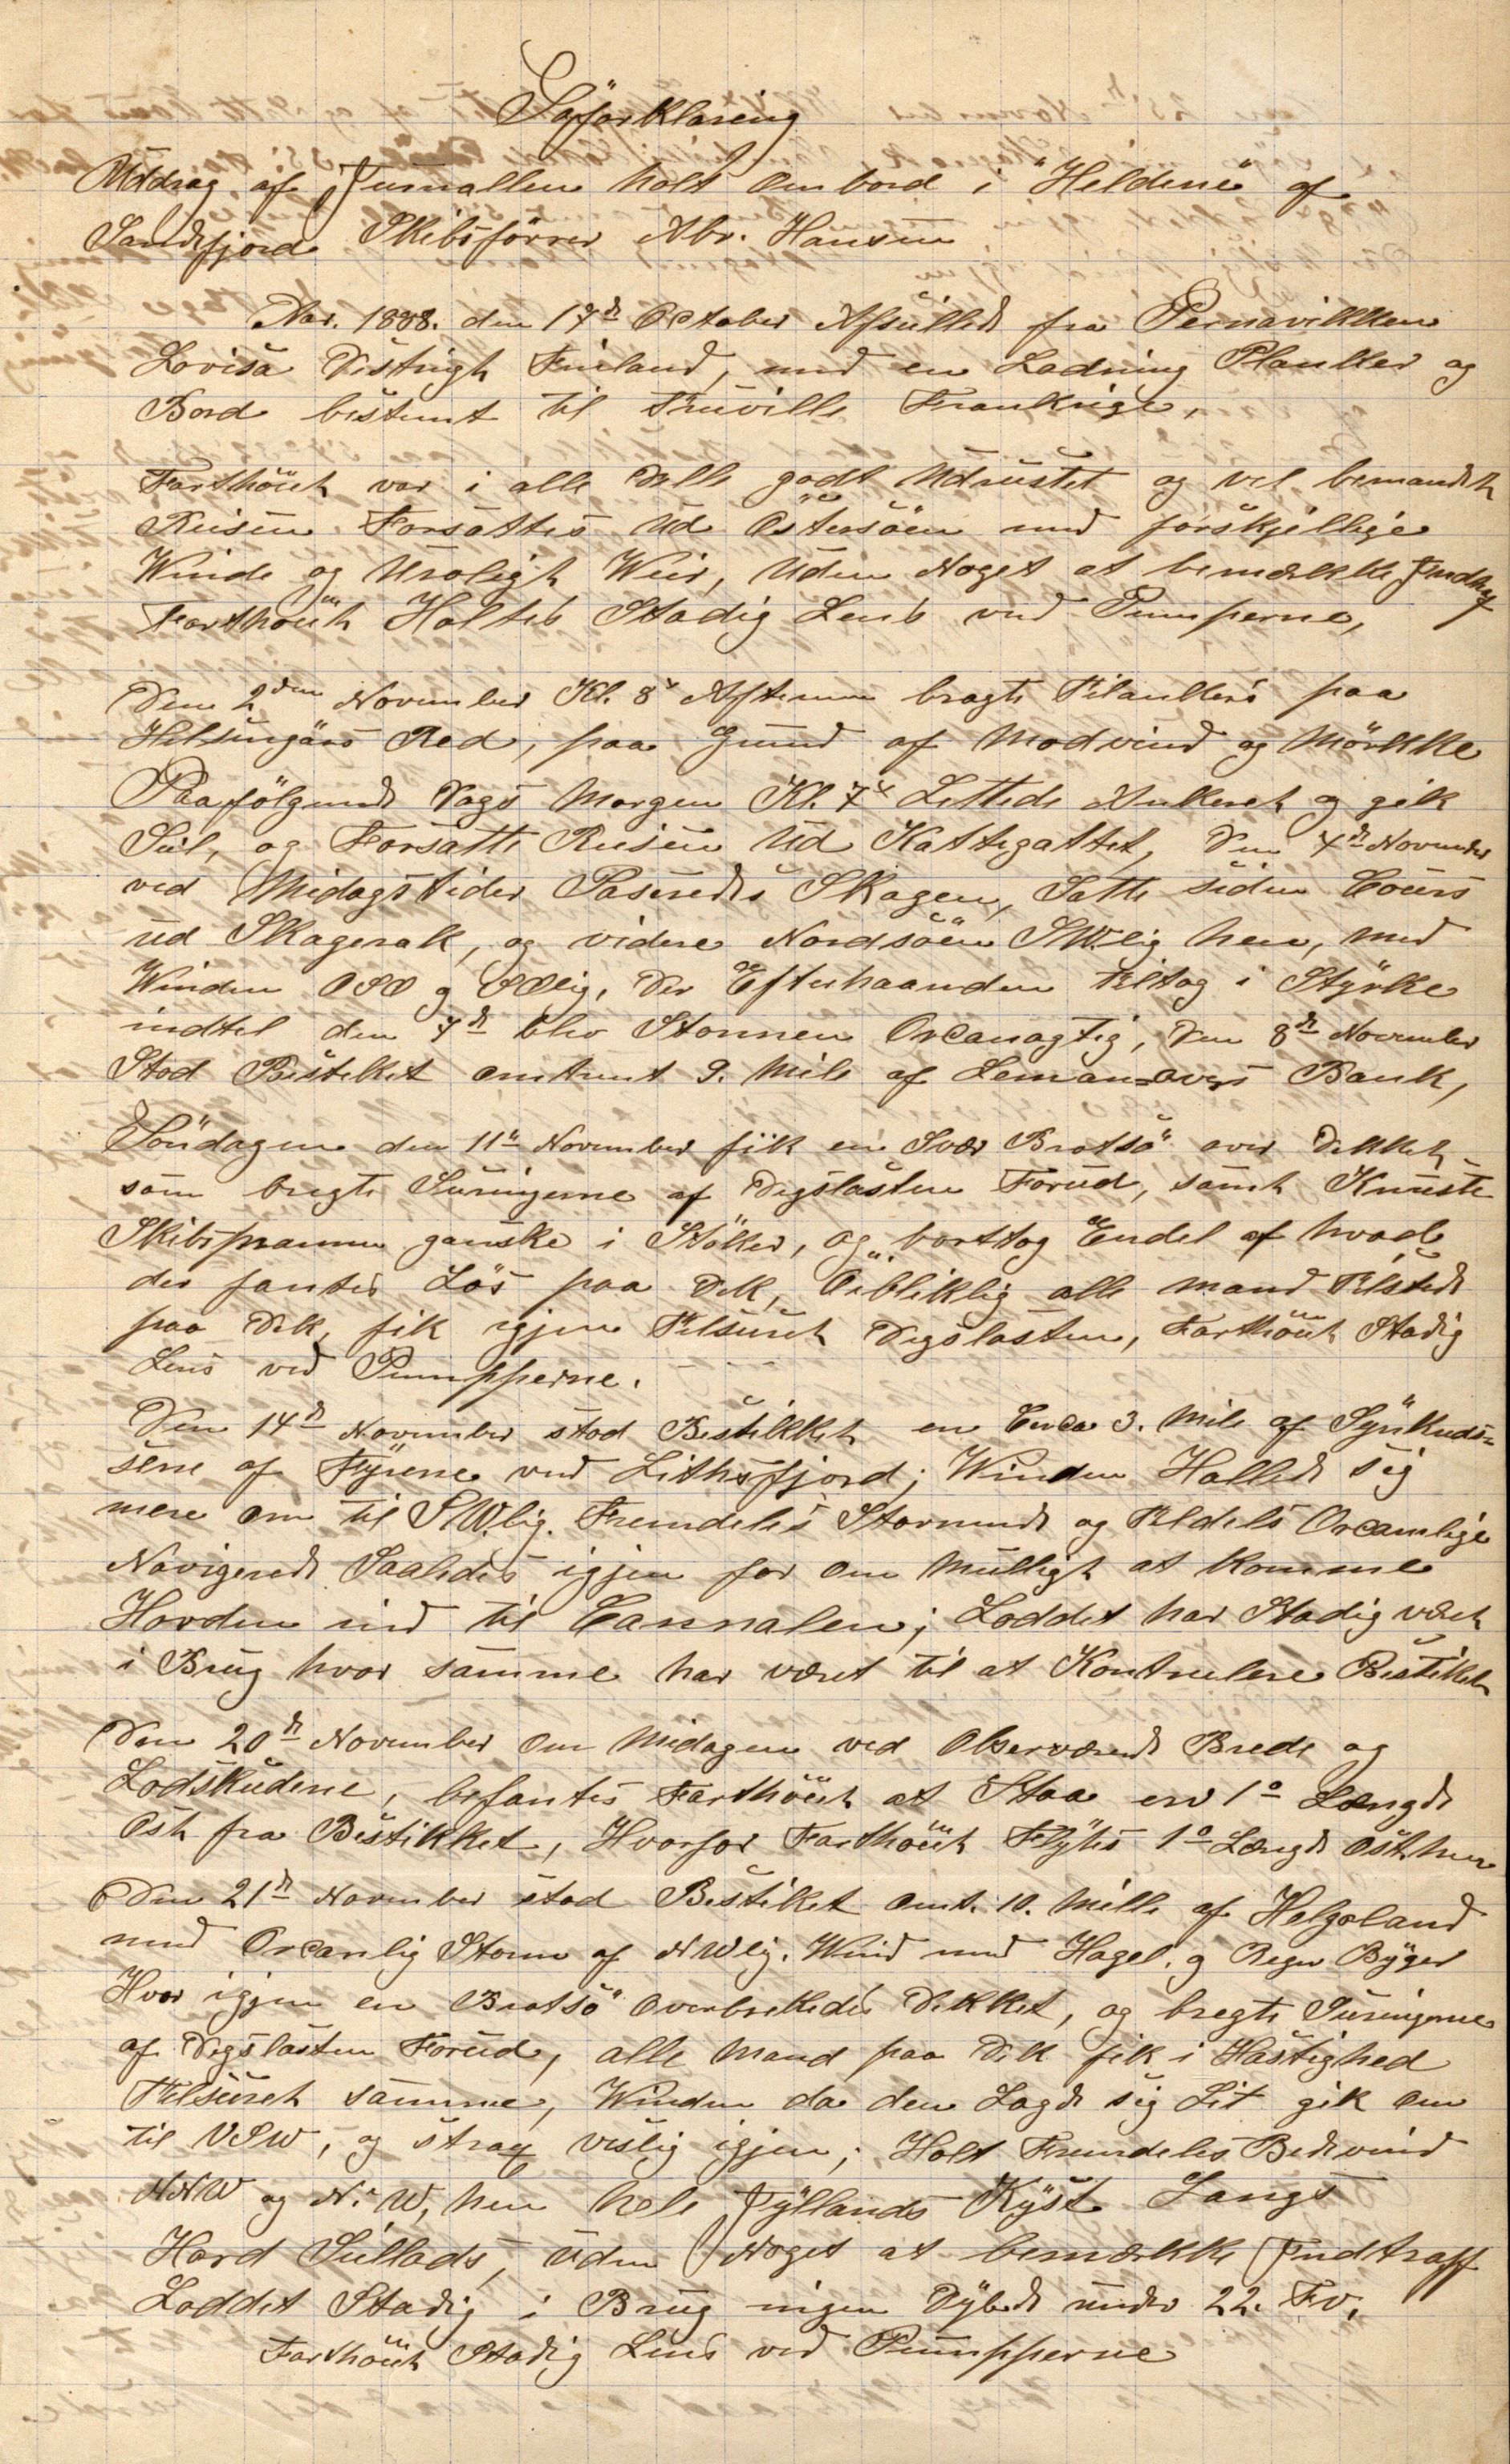 Søforklaring
Uddrag af Jurnallen holt ombord i "Heldine" af
Sandefjord Skibsförrer Abr. Hansen
Aar. 1888. den 17de October Afseillede fra Pernavikken
Lovisa Distrigh Finland, med en Ladning Planker og
Bord bestemt til Truville Frankrige,
Farthöiet var i alle Delle godt Udrustet og vel bemandet
Reisen Forsattes ud Östersöen med forskjellige
Winde og Uroligt Weir, Uden Noget at bemærkke Indtraf
Farthöiet Holtes Stadig Lens ved Pumperne,
Den 2den November Kl. 8 Aftenen bragte Tilankers paa
Helsingörs Red, paa Grund af Modvind og Mörkke
Paafölgende Dags Morgen Kl. 7 Lettede Ankeret og gik
Seil, og Forsatte Reisen Ud Kattegattet, Den 4de November
ved Midagstider Paseredes Skagen, Satte siden Cours
ud Skagerak, og videre Nordsöen SWlig hen, med
Winden OSO og SOlig, der Efterhaanden tiltog i Styrke
indtel den 7de blev Stormen Orcanagtig, Den 8de November
Stod Bestikket omtrent 9. Mile af Leman=Overs Bank,
Söndagen den 11te November fik en Svær Bratsö over Dekket
som bregte Suringerne af Degslasten Forud, samt Knuste
Skibsprammen ganske i Stöker, og borttog Endel af hvad
der fantes Lös paa Dek, Öiebliklig alle mand Tilstede
paa Dek, fik igjen Tilsuret Degslasten, Farthöiet Stadig
Lens ved Pumpperne.
Den 14de November stod Bestikket en Circa 3. Mile af Synkuds=
sene af Fyrene ved Lithsfjord; Winden Hollede sig
mere om til SWlig. Fremdeles Stormende og Tildels Orcanlige
Navigerede Saaledes igjen for om Mulligt at komme
Hovden ind til Cannalen; Loddet har Stadig været
i Brug hvor samme har været til at Kontrulere Bestiket
Den 20de November om Midagen ved Observerende Brede og
Lodskudene, befantes Farthöiet at Staa en 1° Længde
Ost fra Bestikket, Hvorfor Farthöiet Flyttes 1° Længde Ost hen
Den 21de November stod Bestiket omt. 10. Mille af Helgoland
med Orcanlig Storm af NWlig. Wind med Hagel. og Regn Byger
Hvor igjen en Bratsö overbrekkede Dekket, og bregte Suringerne
af Degslasten Forud, alle Mand paa Dek fik i Hastighed
Tilsuret samme, Winden da den Lagde sig Lit gik om
til VSW, og strax veslig igjen; Holt Fremdeles Bidevind
NNW og N. W, hen hele Jyllands Kyst Langs
Hard Seillads, uden Noget at bemærkke Indtraff
Loddet Stadig i Brug ingen Dybde under 22. Fv.
Farthöiet Stadig Lens ved Pumpperne